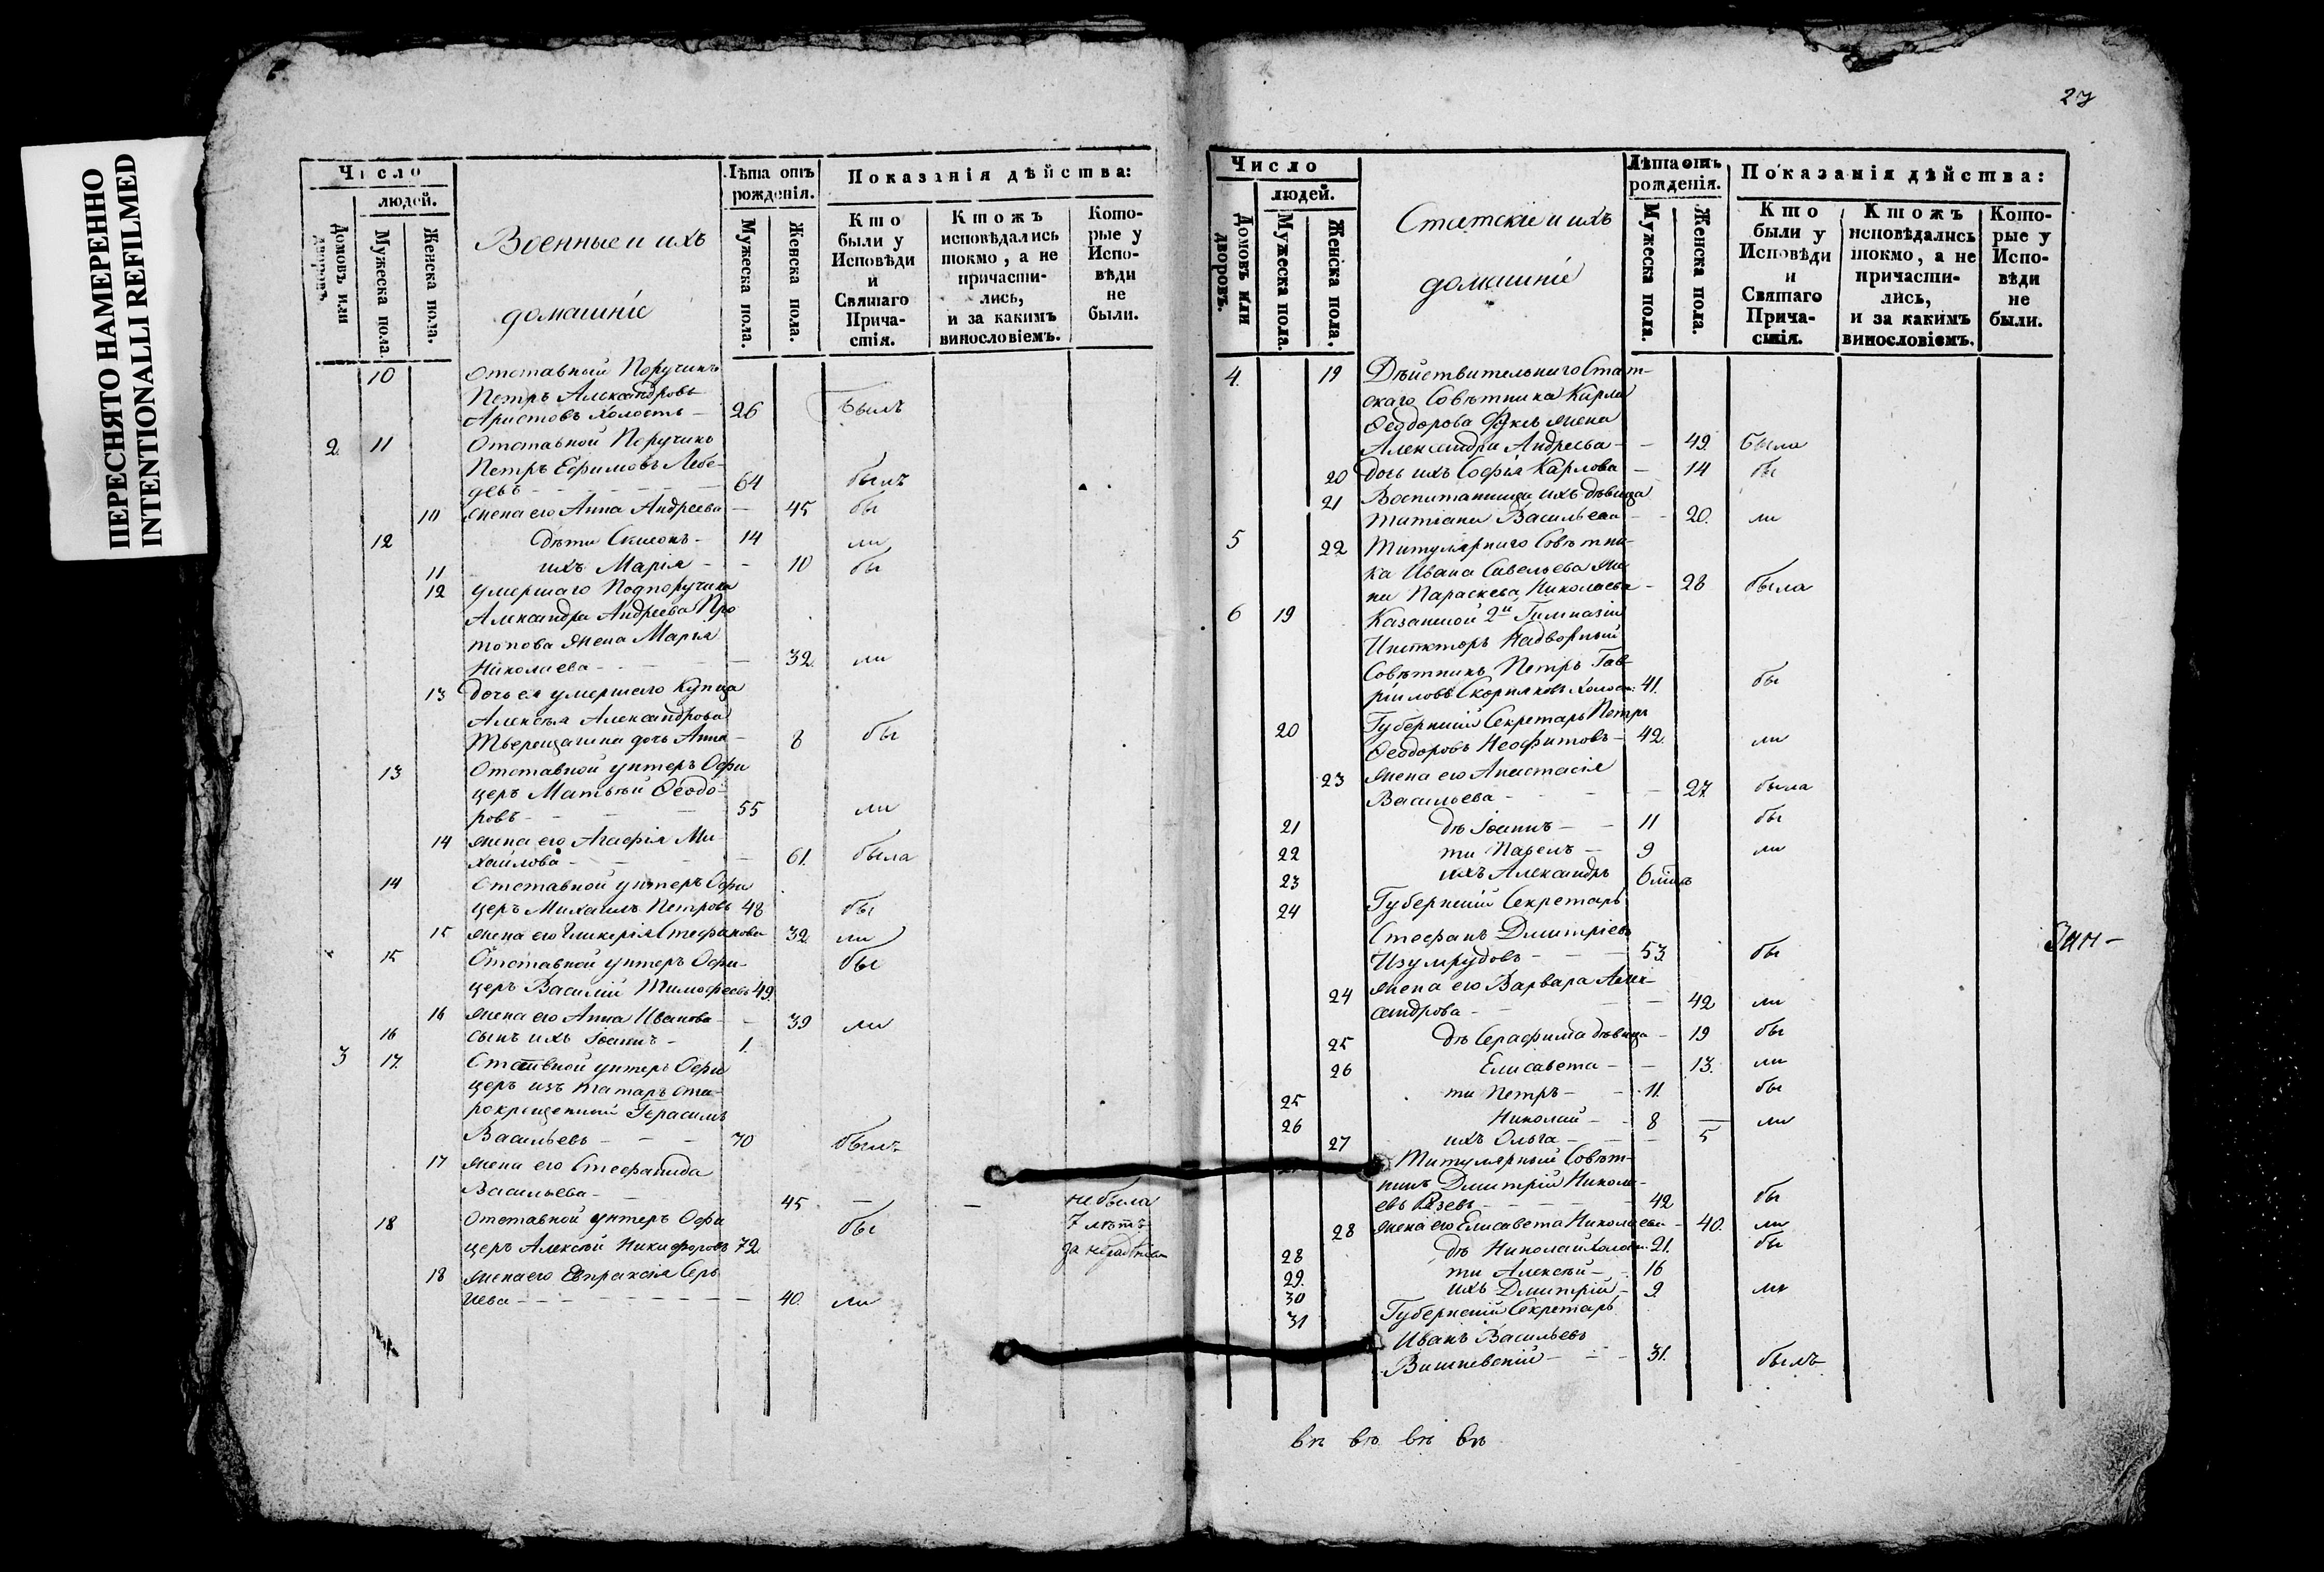 ПЕРЕСНЯТО НАМЕРЕННО
INTENTIONALLI REFILMED
Число
людей.
Домовъ или дворовъ.
Мужеска пола.
Женска пола.
Военные и ихъ
домашніе
Лѣта отъ
рожденія.
Мужеска пола.
Женска пола.
Показанія дѣйства:
Кто
были у
Исповѣди
и
Святаго
Прича-
стія.
Ктожъ
исповѣдались
токмо, а не
причасти-
лись,
и за какимъ
винословіемъ.
Кото-
рые у
Испо-
вѣди
не
были.
10 Отставный Поручикъ
Петръ Александровъ
Аристовъ холостъ — 26 былъ
2 11 Отставной Поручикъ
Петръ Ефимовъ Лебе-
девъ — 64 былъ
10 жена его Анна Андреева — 45 бы
12 дѣти Симеонъ — 14 ли
11 ихъ Марія — 10 бы
12 умершаго Подпоручика
Александра Андреева Про
топопова жена Марья
Николаева — 32 ли
13 дочь ея умершаго купца
Алексѣя Александрова
Тверещагина дочь Анна — 8 бы
13 Отставной унтеръ Офи
церъ Матвѣй Ѳеодо-
ровъ — 55 ли
14 жена его Агафія Ми
хайлова — 61. была
14 Отставной унтеръ Офи
церъ Михаилъ Петровъ 48 бы
15 жена его Гликерія Стефанова 32 ли
15 Отставной унтеръ Офи- бы
церъ Василій Тимофеевъ 49.
16 жена его Анна Иванова — 39 ли
16 сынъ ихъ Іоаннъ — 1.
3 17. Отставной унтеръ Офи
церъ изъ татаръ ста-
рокрещенный Герасимъ
Васильевъ — 70 былъ
17 жена его Стефанида
Васильева — 45 — — не была
18 Отставной унтеръ Офи бы 7 лѣтъ
церъ Алексѣй Никифоровъ 72
18 жена его Евпраксія Сер
гіева — 40. ли
27
Число
людей.
Домовъ или дворовъ.
Мужеска пола.
Женска пола.
Статскіе и ихъ
домашніе
Лѣта отъ
рожденія.
Мужеска пола.
Женска пола.
Показанія дѣйства:
Кто
были у
Исповѣди
и
Святаго
Прича-
стія.
Ктожъ
исповѣдались
токмо, а не
причасти-
лись,
и за какимъ
винословіемъ.
Кото-
рые у
Испо-
вѣди
не
были.
4. 19 Дѣйствительнаго Стат-
скаго Совѣтника Карла
Ѳеодорова Фуксъ жена
Александра Андреева — 49. была
20 дочь ихъ Софія Карлова — 14 бы
21 Воспитанница ихъ дѣвица
Татіана Васильева — 20. ли
5 22 Титулярнаго Совѣтни-
ка Ивана Савельева же
на Параскева Николаева — 28 была
6 19 Казанской 2й Гимназіи
Инспекторъ Надворный
Совѣтникъ Петръ Гав-
ріиловъ Скорняковъ холос: 41. бы
20 Губернскій Секретарь Петръ
Ѳеодоровъ Неофитовъ — 42. ли
23 жена его Анастасія
Васильева — 27 была
21 дѣ Іоаннъ — 11 бы
22 ти Павелъ — 9 ли
23 ихъ Александръ 6 міцъ
24 Губернскій Секретарь
Стефанъ Дмитріевъ
Изумрудовъ — 53. бы
24 жена его Варвара Алек-
сандрова — 42 ли
25 дѣ Серафима дѣвица — 19 бы
26 Елисавета — 13. ли
25 ти Петръ — 11. бы
26 Николай — 8 — ли
27 ихъ Ольга — 5
Титулярный Совѣт-
никъ Дмитрій Никола-
евъ — 42 бы
28 жена его Елисавета Николаева — 40. ли
28 дѣ Николай холос. 21. бы
29. ти Алексѣй — 16
30 ихъ Дмитрій — 9. ли
31 Губернскій Секретарь
Иванъ Васильевъ
Вишневскій — 31. былъ